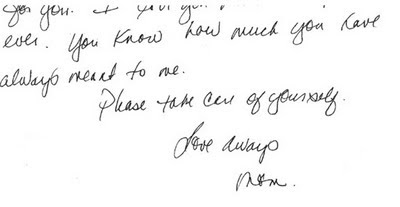 for you. I
ever. You know how much you have
always meant to me.
Please take care of yourself.
Love always
Mom.